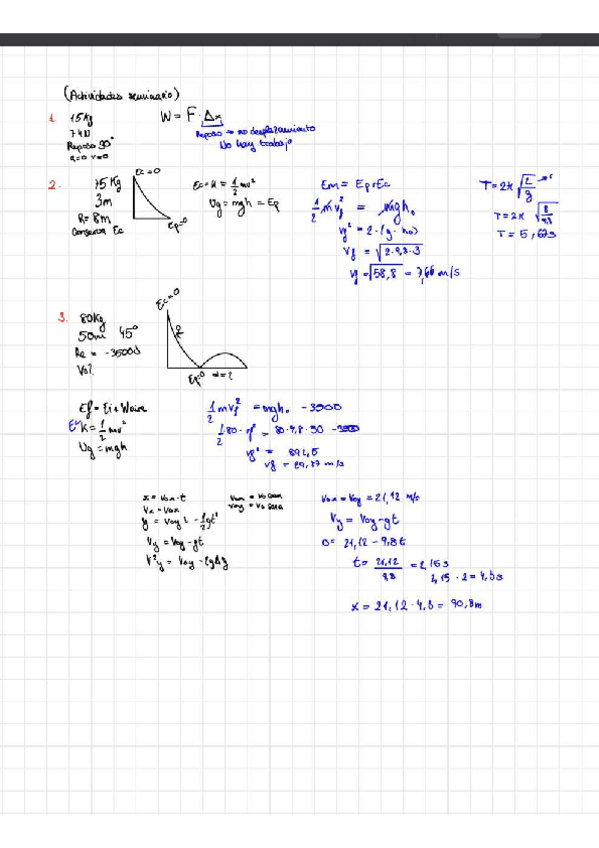 (Actividades seminario)
1. 15Kg W = F · Δx
74N
Reposo → no desplazamiento
No hay trabajo
Reposo 90°
a=0 v=0
2. 75 Kg
3m
R = 8m
Conserva Ec
Ec=0
Ep=0
Ec=K = 1/2 mv²
Ug = mgh = Ep
Em = Ep+Ec
1/2 m vf² = mgh₀
vf² = 2·(g·h₀)
vf = √2·9,8·3
vf = √58,8 = 7,66 m/s
T = 2π √
T = 2π √8/9,8
T = 5,67s
3. 80Kg
50m 45°
= -3500J
Ec=0
Ep=0
Ef = Ei + Waire
Ec K = 1/2 mv²
Ug = mgh
1/2 mvf² = mgh₀ - 3500
1/2 80 · vf² = 80·9,8·50 - 3500
vf² = 892,5
vf = 29,87 m/s
x = vox · t
Vx = vox
y = voy t - 1/2 gt²
Vy = voy - gt
V²y = voy - 2gΔy
vox = vo cosα
Vox = Voy = 21,12 m/s
Vy = Voy - gt
0 = 21,12 - 9,8t
t = 21,12/9,8 = 2,15 s
2,15 · 2 = 4,3s
x = 21,12 · 4,3 = 90,8m